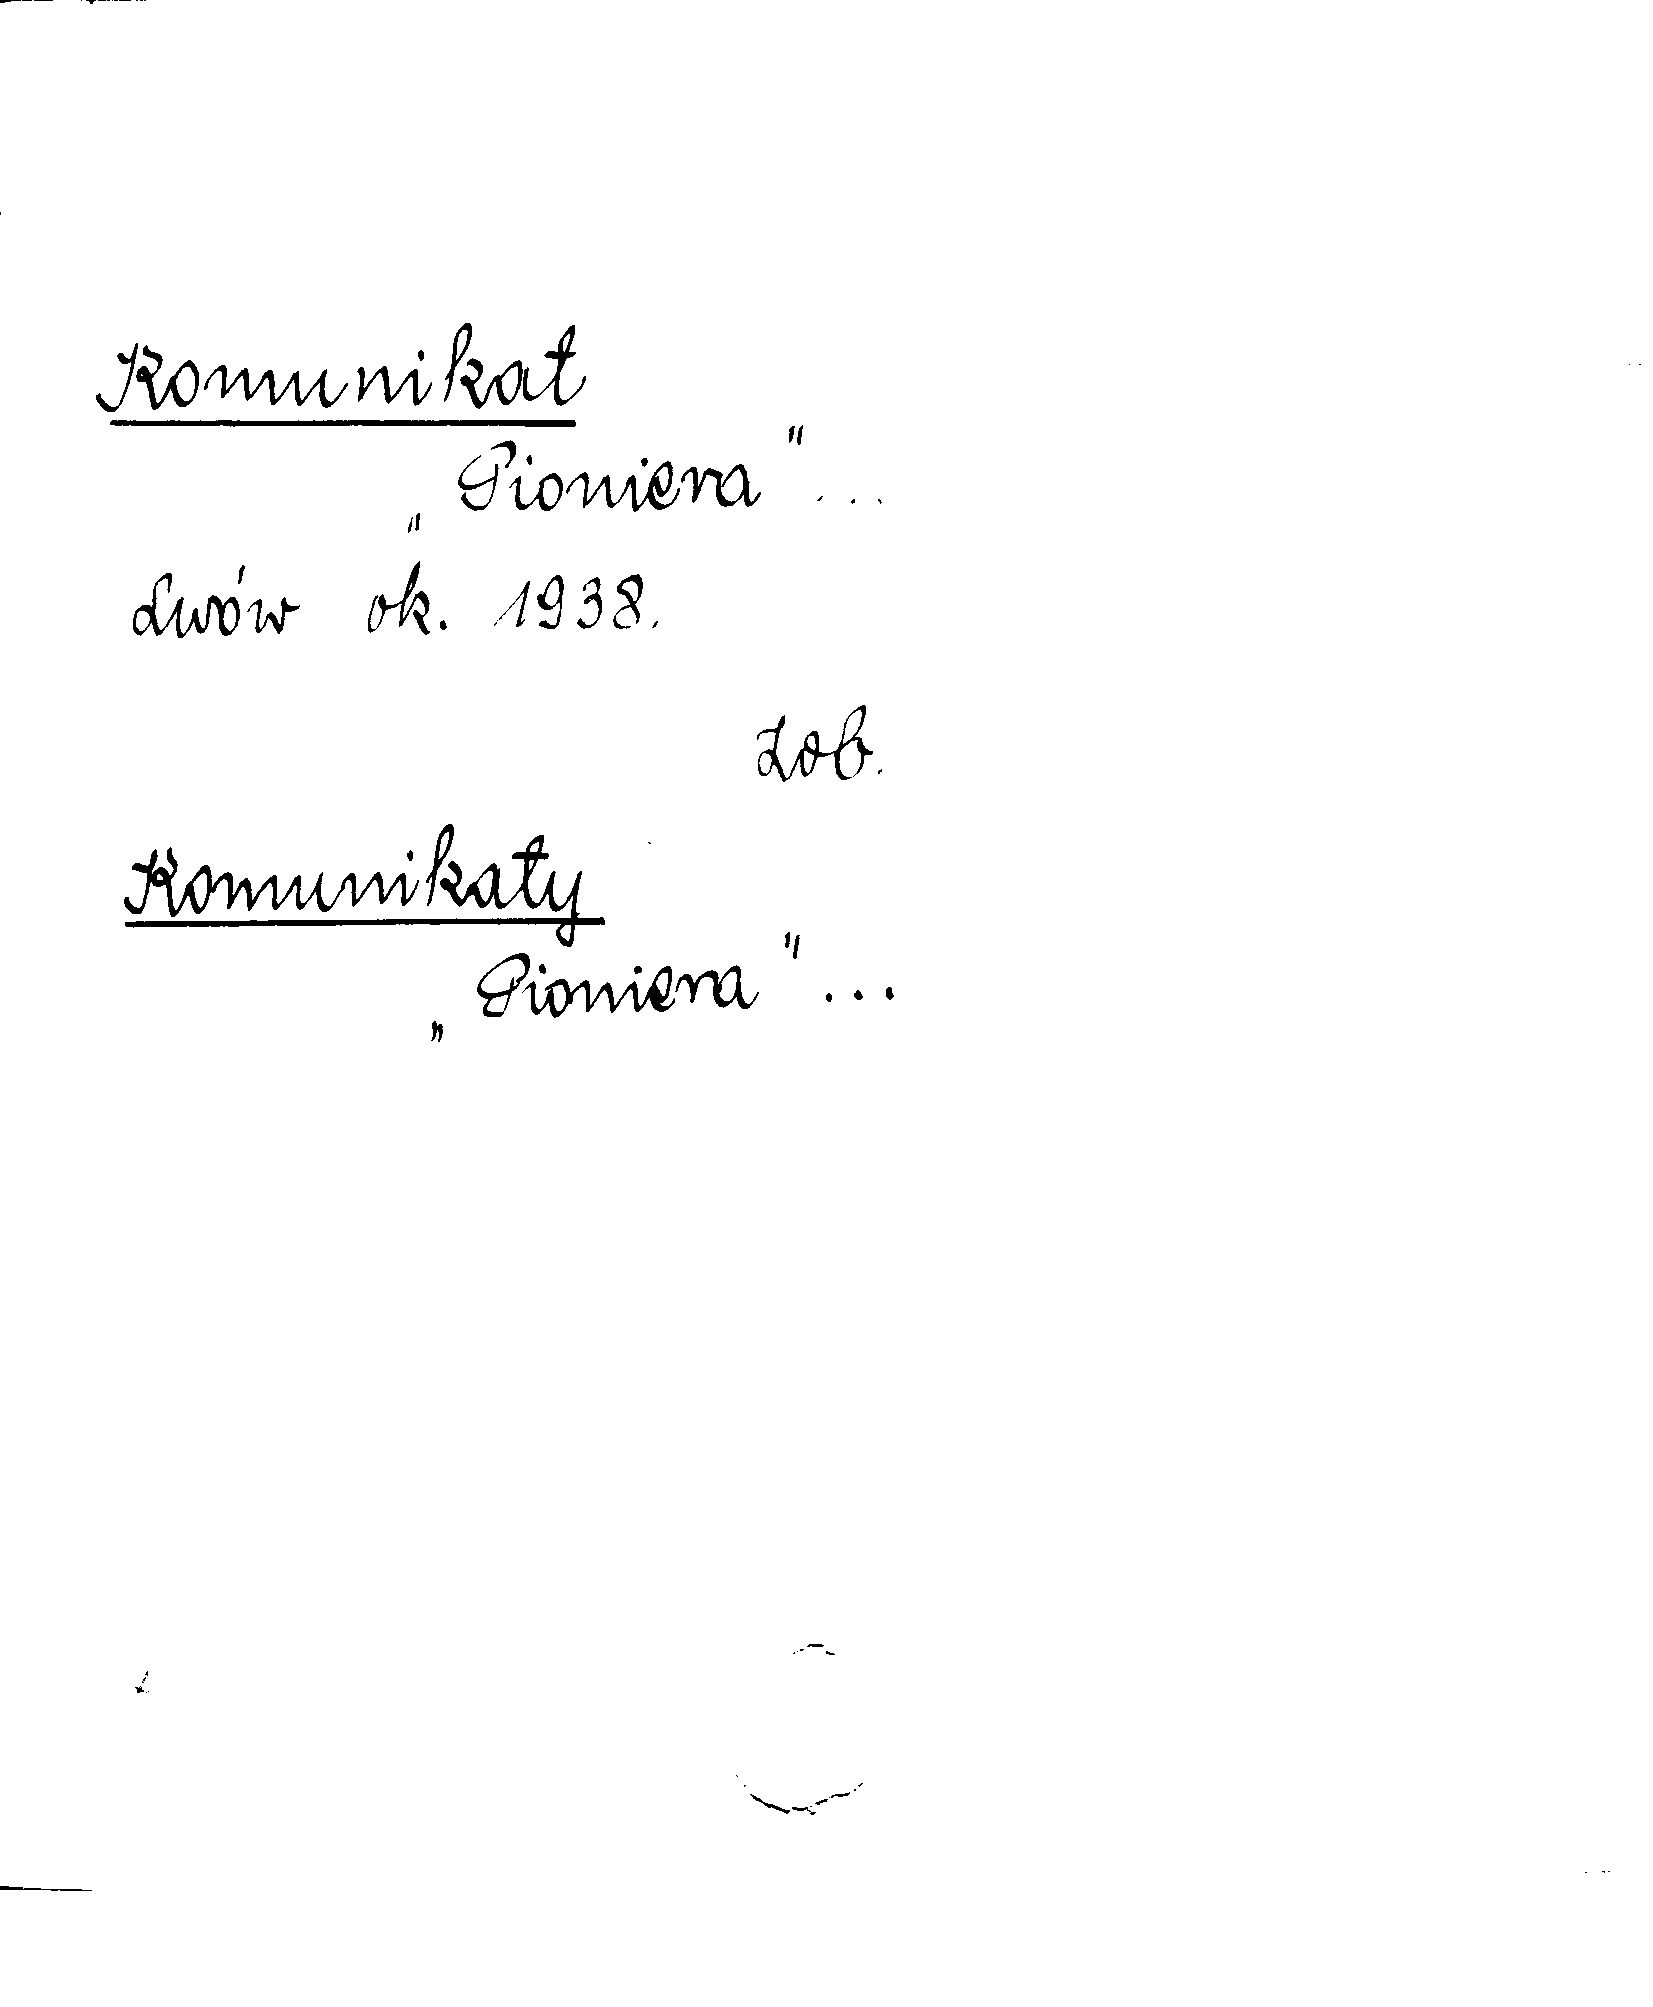 Komunikat
„Pioniera"...
Lwów ok. 1938.
Zob.
Komunikaty
„Pioniera"...